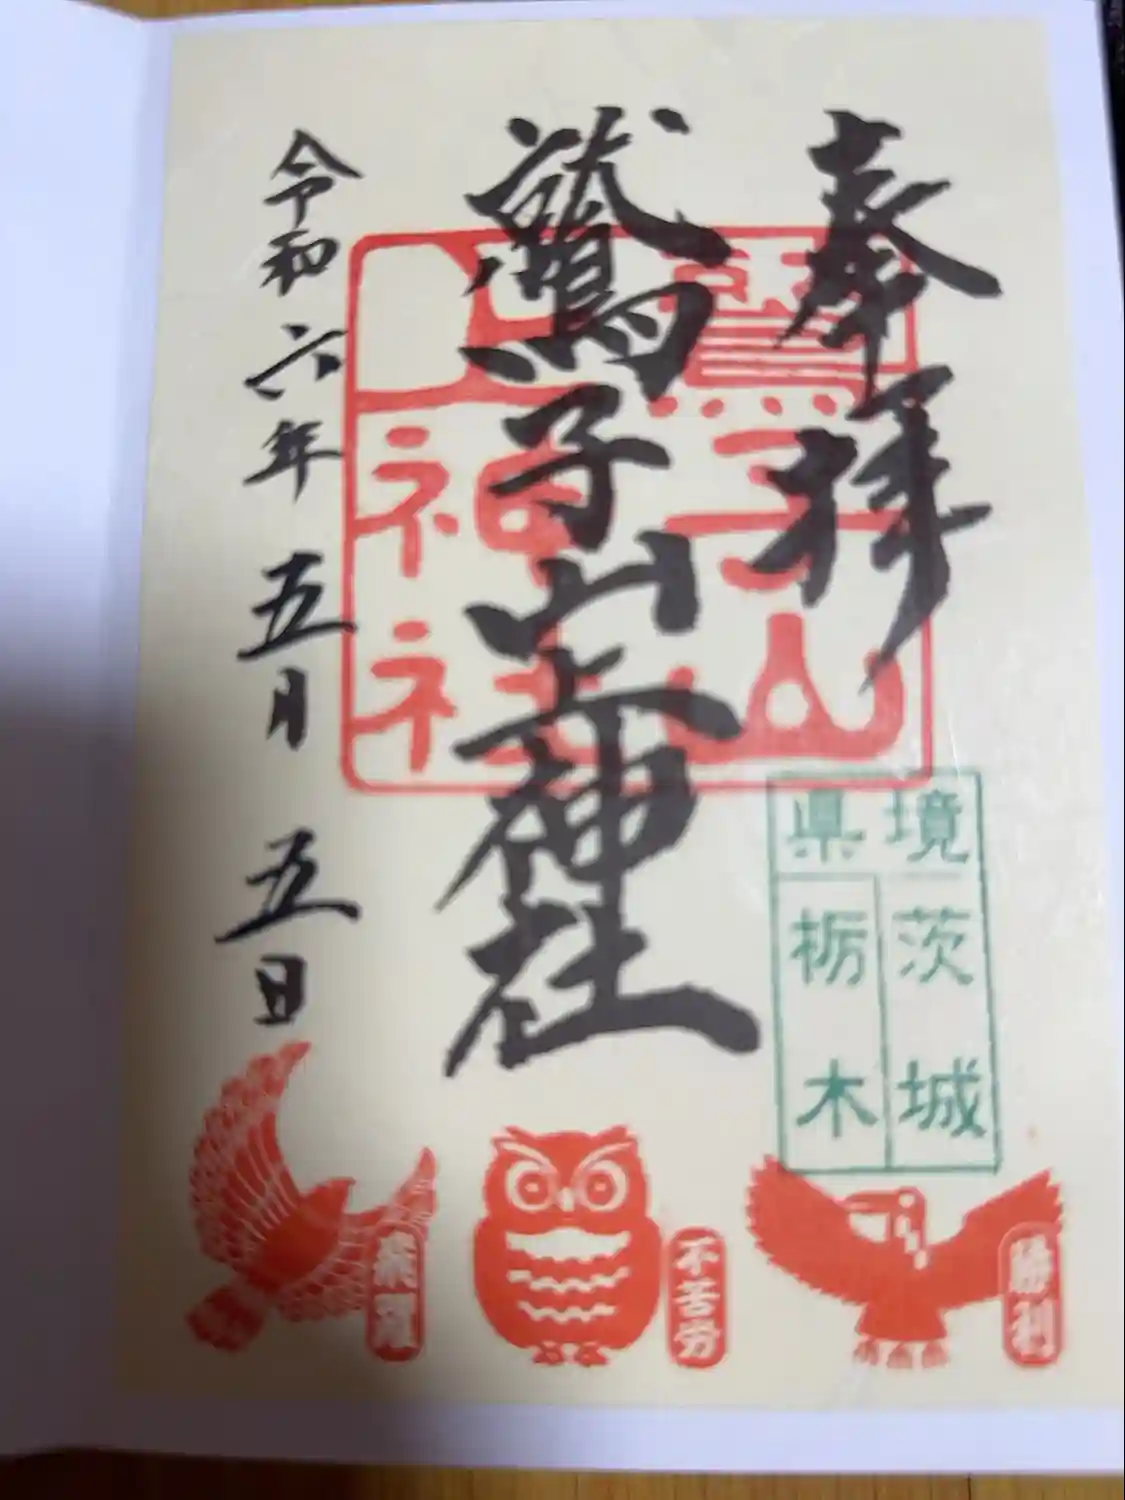 奉拝
鷲子山上神社
令和六年五月五日
鷲子山
上神社
県境
茨城
栃木
勝利
不苦労
飛躍